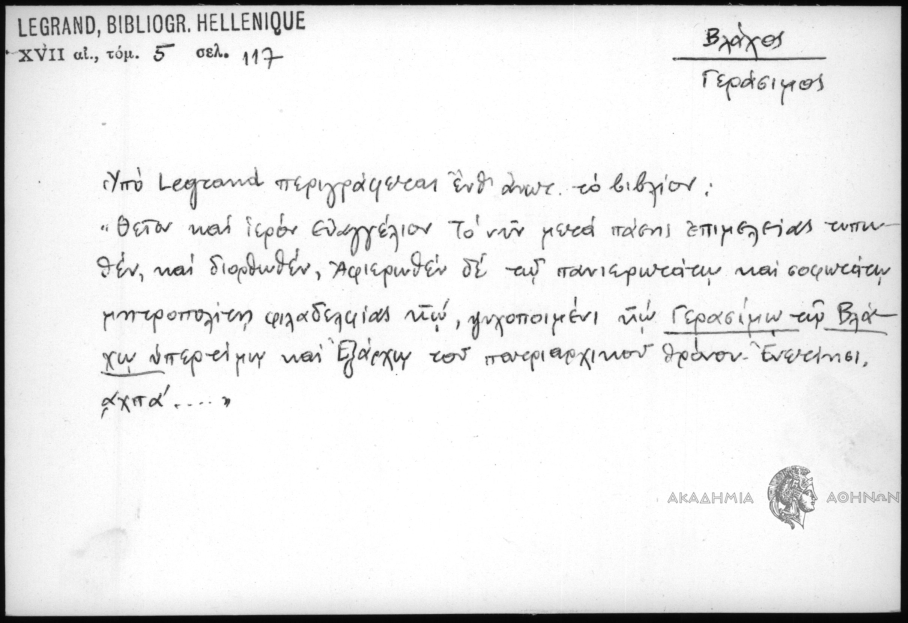 LEGRAND, BIBLIOGR. HELLENIQUE
XVII αἰ., τόμ. 5 σελ. 117
Βλάχος
Γεράσιμος
Ὑπό Legrand περιγράφεται ἔνθ' ἀνωτ. τὸ βιβλίον:
"Θεῖον καί ἱερόν εὐαγγέλιον τό νῦν μετά πάσης ἐπιμελείας τυπω-
θέν, καί διορθωθέν, Ἀφιερωθέν δέ τῷ πανιερωτάτῳ καί σοφωτάτῳ
μητροπολίτῃ φιλαδελφίας κῳ, κῳ Γερασίμῳ τῷ Βλά-
χῳ ὑπερτίμῳ καί Ἐξάρχῳ τοῦ πατριαρχικοῦ θρόνου. Ἐνετίησι,
αχπά....."
ΑΚΑΔΗΜΙΑ ΑΘΗΝΩΝ